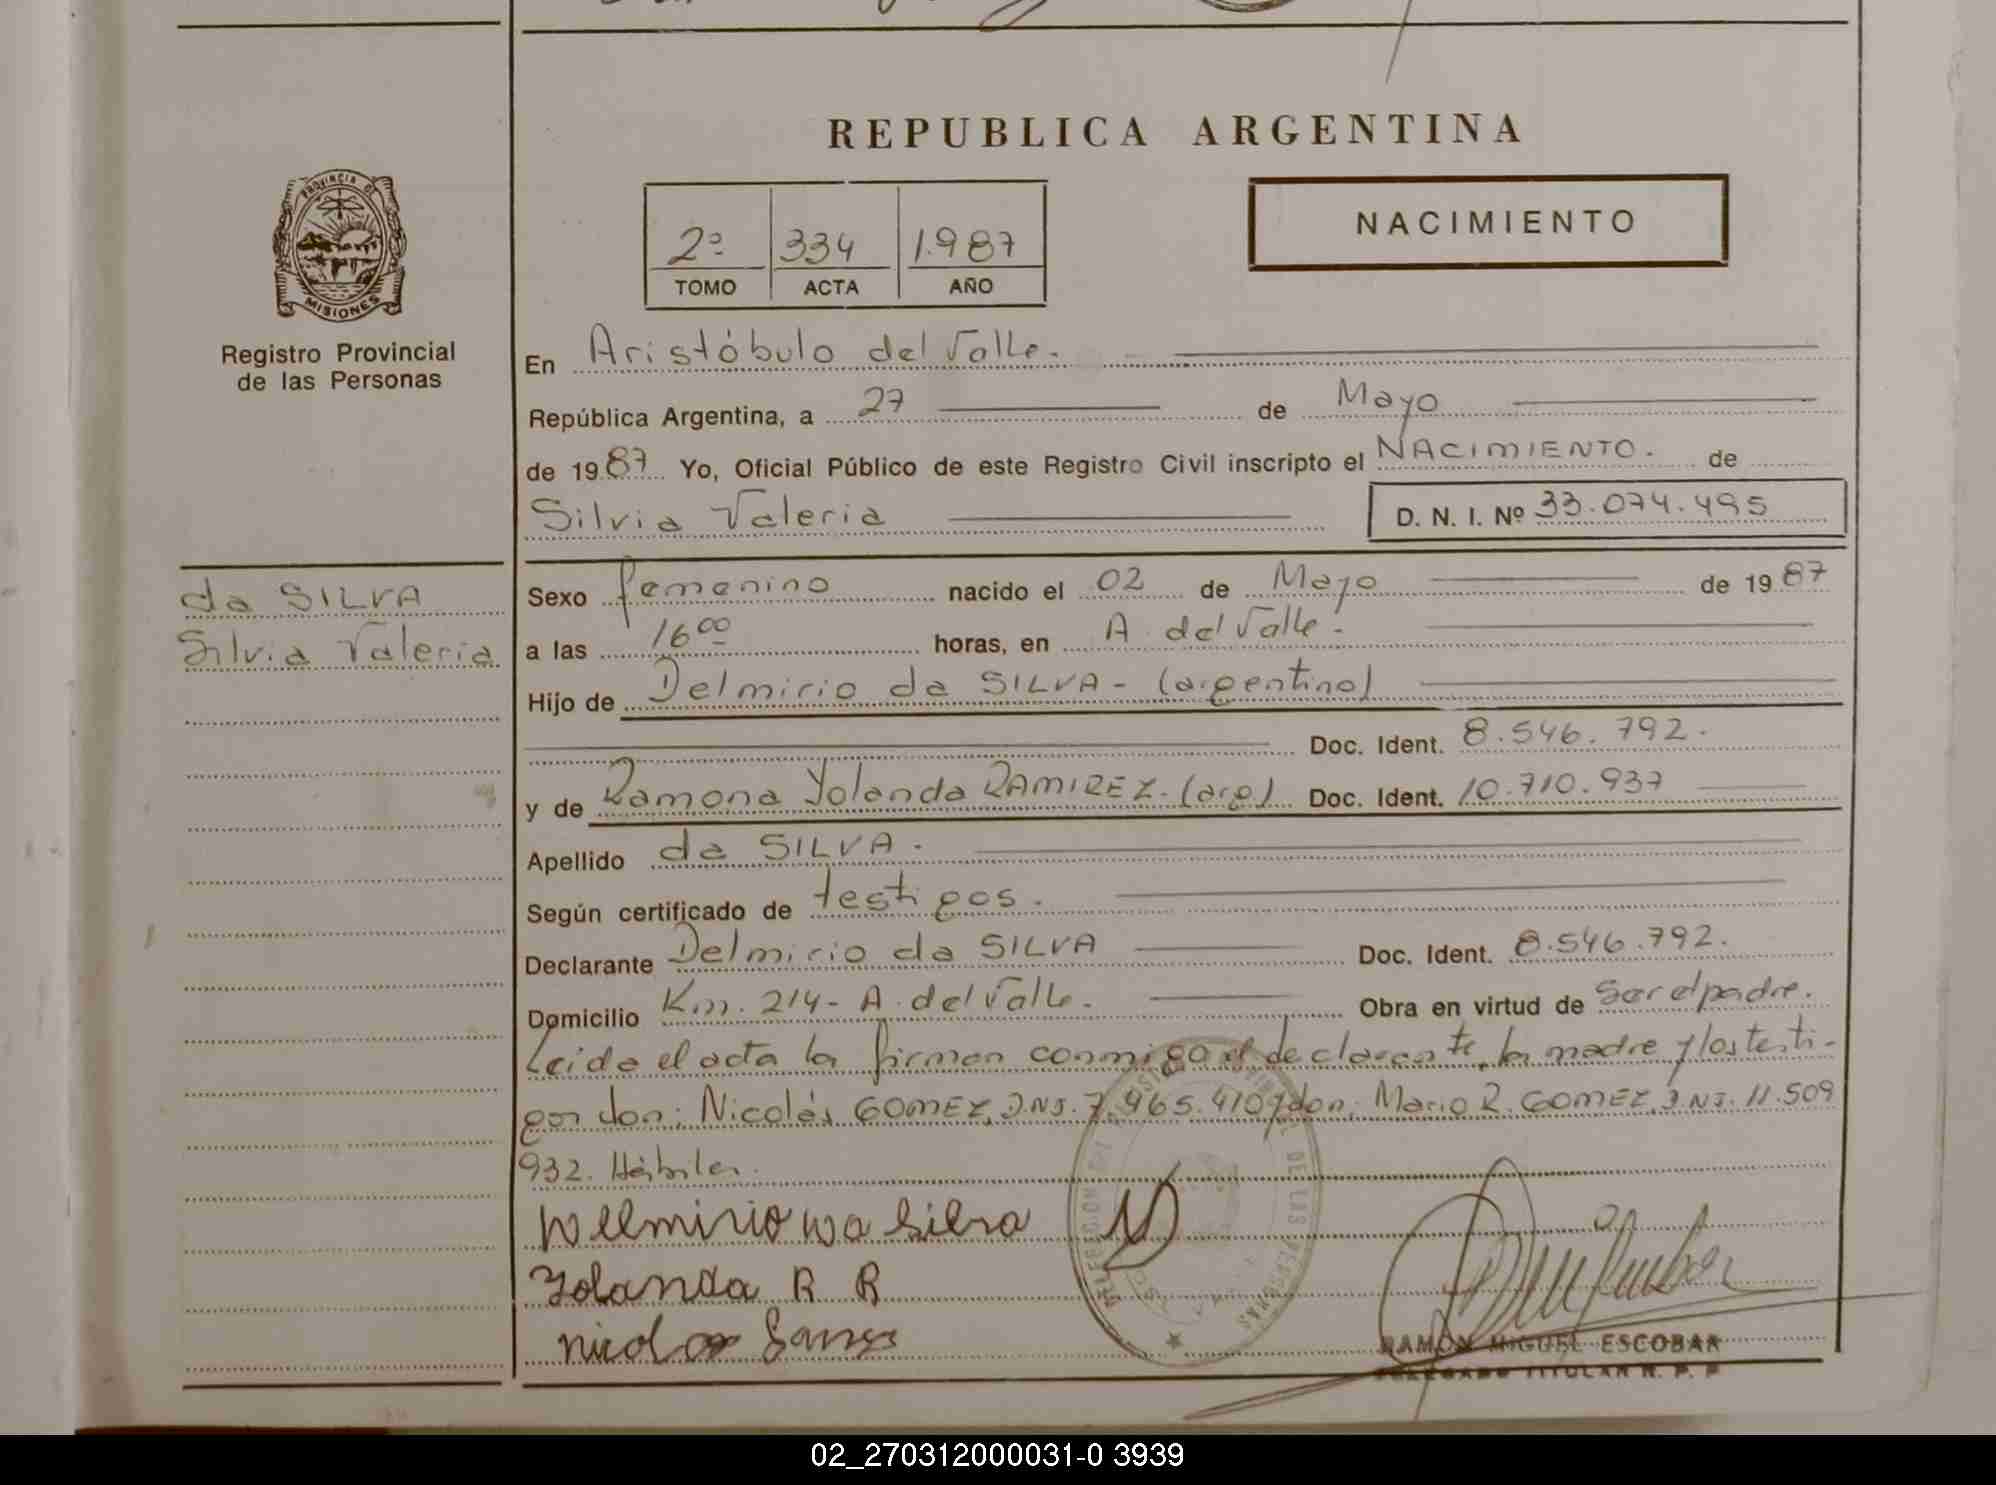 REPUBLICA ARGENTINA
PROVINCIA DE
MISIONES
Registro Provincial
de las Personas
2º 334 1.987
TOMO ACTA AÑO
NACIMIENTO
En Aristóbulo del Valle.
República Argentina, a 27 de Mayo
de 1987 Yo, Oficial Público de este Registro Civil inscripto el NACIMIENTO. de
Silvia Valeria D. N. I. Nº 33.074.495
da SILVA
Silvia Valeria
Sexo femenino nacido el 02 de Mayo de 1987
a las 16 00 horas, en A. del Valle.
Hijo de Delmirio da SILVA - (argentino)
Doc. Ident. 8.546.792.
y de Ramona Yolanda RAMIREZ. (arg) Doc. Ident. 10.710.937
Apellido da SILVA.
Según certificado de testigos.
Declarante Delmirio da SILVA Doc. Ident. 8.546.792.
Domicilio Km. 214 - A. del Valle. Obra en virtud de ser el padre.
Leida el acta la firman conmigo el declarante, la madre y los testi-
gos don: Nicolás GOMEZ, D.N.I. 7.965.410 y don: Mario R. GOMEZ, D.N.I. 11.509
932. Hábiles.
Wellmirio wa Silva
Yolanda R R
RAMON MIGUEL ESCOBAR
DELEGADO TITULAR R. P. P.
02_270312000031-0 3939